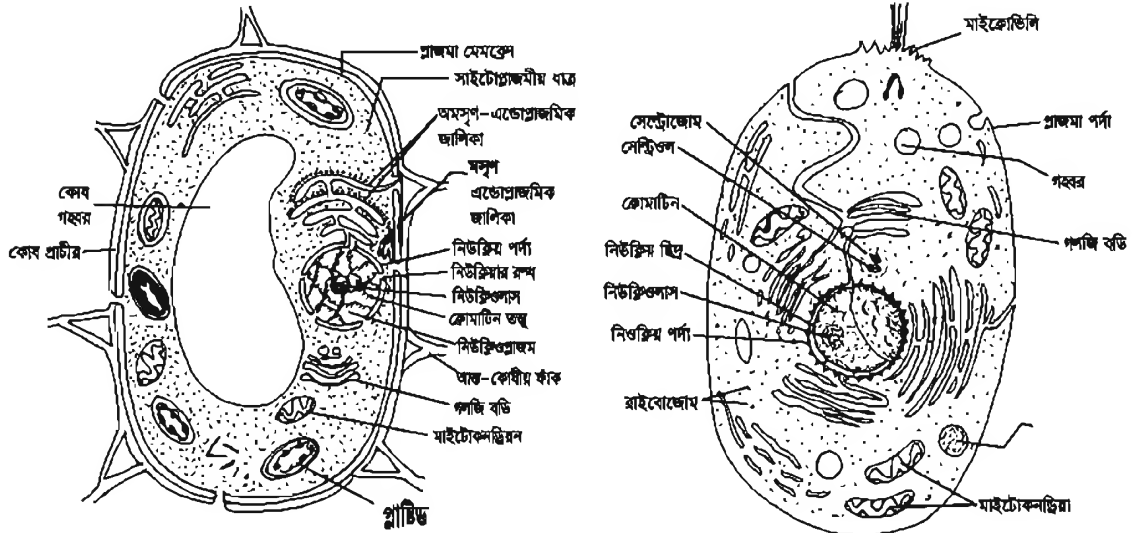 প্লাজমা মেমব্রেন
সাইটোপ্লাজমীয় ধাত্র
অমসৃণ-এন্ডোপ্লাজমিক
জালিকা
মসৃণ
এন্ডোপ্লাজমিক
জালিকা
কোষ
গহ্বর
কোষ প্রাচীর
নিউক্লিয় পর্দা
নিউক্লিয়ার রন্ধ্র
নিউক্লিওলাস
ক্রোমাটিন তন্তু
নিউক্লিওপ্লাজম
আন্ত-কোষীয় ফাঁক
গলজি বডি
মাইটোকনড্রিয়ন
প্লাস্টিড
মাইক্রোভিলি
সেন্ট্রোজোম
সেন্ট্রিওল
প্লাজমা পর্দা
গহ্বর
ক্রোমাটিন
গলজি বডি
নিউক্লিয় ছিদ্র
নিউক্লিওলাস
নিওক্লিয় পর্দা
রাইবোজোম
মাইটোকনড্রিয়া